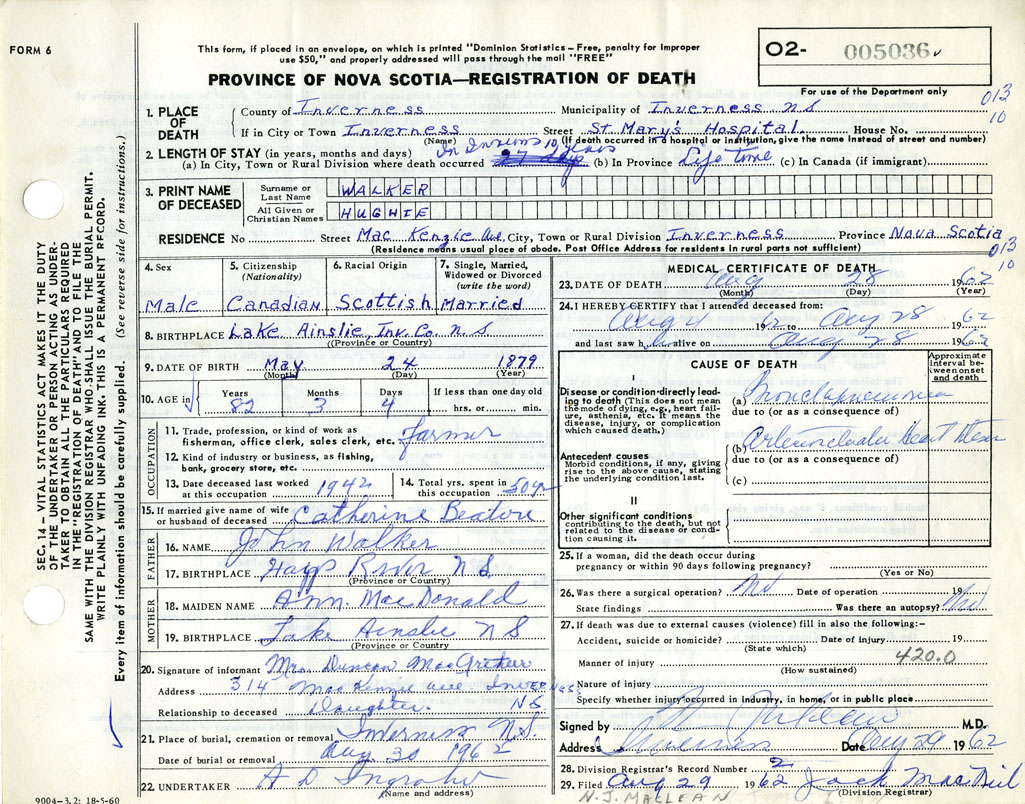 FORM 6
This form, if placed in an envelope, on which is printed "Dominion Statistics – Free, penalty for improper
use $50," and properly addressed will pass through the mail "FREE"
O2- 005036
PROVINCE OF NOVA SCOTIA—REGISTRATION OF DEATH
For use of the Department only
013
10
SEC. 14 – VITAL STATISTICS ACT MAKES IT THE DUTY
OF THE UNDERTAKER OR PERSON ACTING AS UNDER-
TAKER TO OBTAIN ALL THE PARTICULARS REQUIRED
IN THE "REGISTRATION OF DEATH" AND TO FILE THE
SAME WITH THE DIVISION REGISTRAR WHO SHALL ISSUE THE BURIAL PERMIT.
WRITE PLAINLY WITH UNFADING INK. THIS IS A PERMANENT RECORD.
Every item of information should be carefully supplied. (See reverse side for instructions.)
1. PLACE OF DEATH
County of Inverness Municipality of Inverness N S
If in City or Town Inverness Street St Mary's Hospital House No.
(Name) (If death occurred in a hospital or institution, give the name instead of street and number)
2. LENGTH OF STAY (in years, months and days) In 10 years
(a) In City, Town or Rural Division where death occurred (b) In Province Life Time (c) In Canada (if immigrant)
3. PRINT NAME OF DECEASED
Surname or Last Name WALKER
All Given or Christian Names HUGHIE
RESIDENCE No Street Mac Kenzie Ave City, Town or Rural Division Inverness Province Nova Scotia
(Residence means usual place of abode. Post Office Address for residents in rural parts not sufficient)
013
10
4. Sex
Male
5. Citizenship
(Nationality)
Canadian
6. Racial Origin
Scottish
7. Single, Married,
Widowed or Divorced
(write the word)
Married
8. BIRTHPLACE Lake Ainslie Inv. Co. N S
(Province or Country)
9. DATE OF BIRTH May 24 1879
(Month) (Day) (Year)
10. AGE in Years Months Days If less than one day old
82 3 4 hrs. or min.
OCCUPATION
11. Trade, profession, or kind of work as
fisherman, office clerk, sales clerk, etc. farmer
12. Kind of industry or business, as fishing,
bank, grocery store, etc
13. Date deceased last worked
at this occupation 1942
14. Total yrs. spent in
this occupation 50 yr
15. If married give name of wife
or husband of deceased Catherine Beaton
FATHER
16. NAME John Walker
17. BIRTHPLACE Hays River N S
(Province or Country)
MOTHER
18. MAIDEN NAME Ann. MacDonald
19. BIRTHPLACE Lake Ainslie N S
(Province or Country)
20. Signature of informant Mrs. Duncan
Address 314 MacKenzie ave. Inverness
Relationship to deceased Daughter. NS
21. Place of burial, cremation or removal Inverness N.S.
Date of burial or removal Aug 30 1962
22. UNDERTAKER A D
(Name and address)
9004-3.2: 18-5-60
MEDICAL CERTIFICATE OF DEATH
23. DATE OF DEATH Aug 28 1962
(Month) (Day) (Year)
24. I HEREBY CERTIFY that I attended deceased from:
Aug 4 1962 to Aug 28 1962
and last saw h alive on Aug 28 1962
CAUSE OF DEATH
Approximate
interval be-
tween onset
and death
I
Disease or condition directly lead-
ing to death (This does not mean
the mode of dying, e.g., heart fail-
ure, asthenia, etc. It means the
disease, injury, or complication
which caused death.)
(a) Bronchopneumonia
due to (or as a consequence of)
Antecedent causes
Morbid conditions, if any, giving
rise to the above cause, stating
the underlying condition last.
(b) Heart
due to (or as a consequence of)
(c)
II
Other significant conditions
contributing to the death, but not
related to the disease or condi-
tion causing it.
25. If a woman, did the death occur during
pregnancy or within 90 days following pregnancy?
(Yes or No)
26. Was there a surgical operation? No Date of operation 19
State findings Was there an autopsy? No
27. If death was due to external causes (violence) fill in also the following:-
Accident, suicide or homicide? Date of injury 19
(State which)
420.0
Manner of injury
(How sustained)
Nature of injury
Specify whether injury occurred in industry, in home, or in public place
Signed by M.D.
Address Inverness Date Aug 29 1962
28. Division Registrar's Record Number 2
29. Filed Aug 29 1962 Jack MacNeil
(Division Registrar)
N. J. MACLEAN